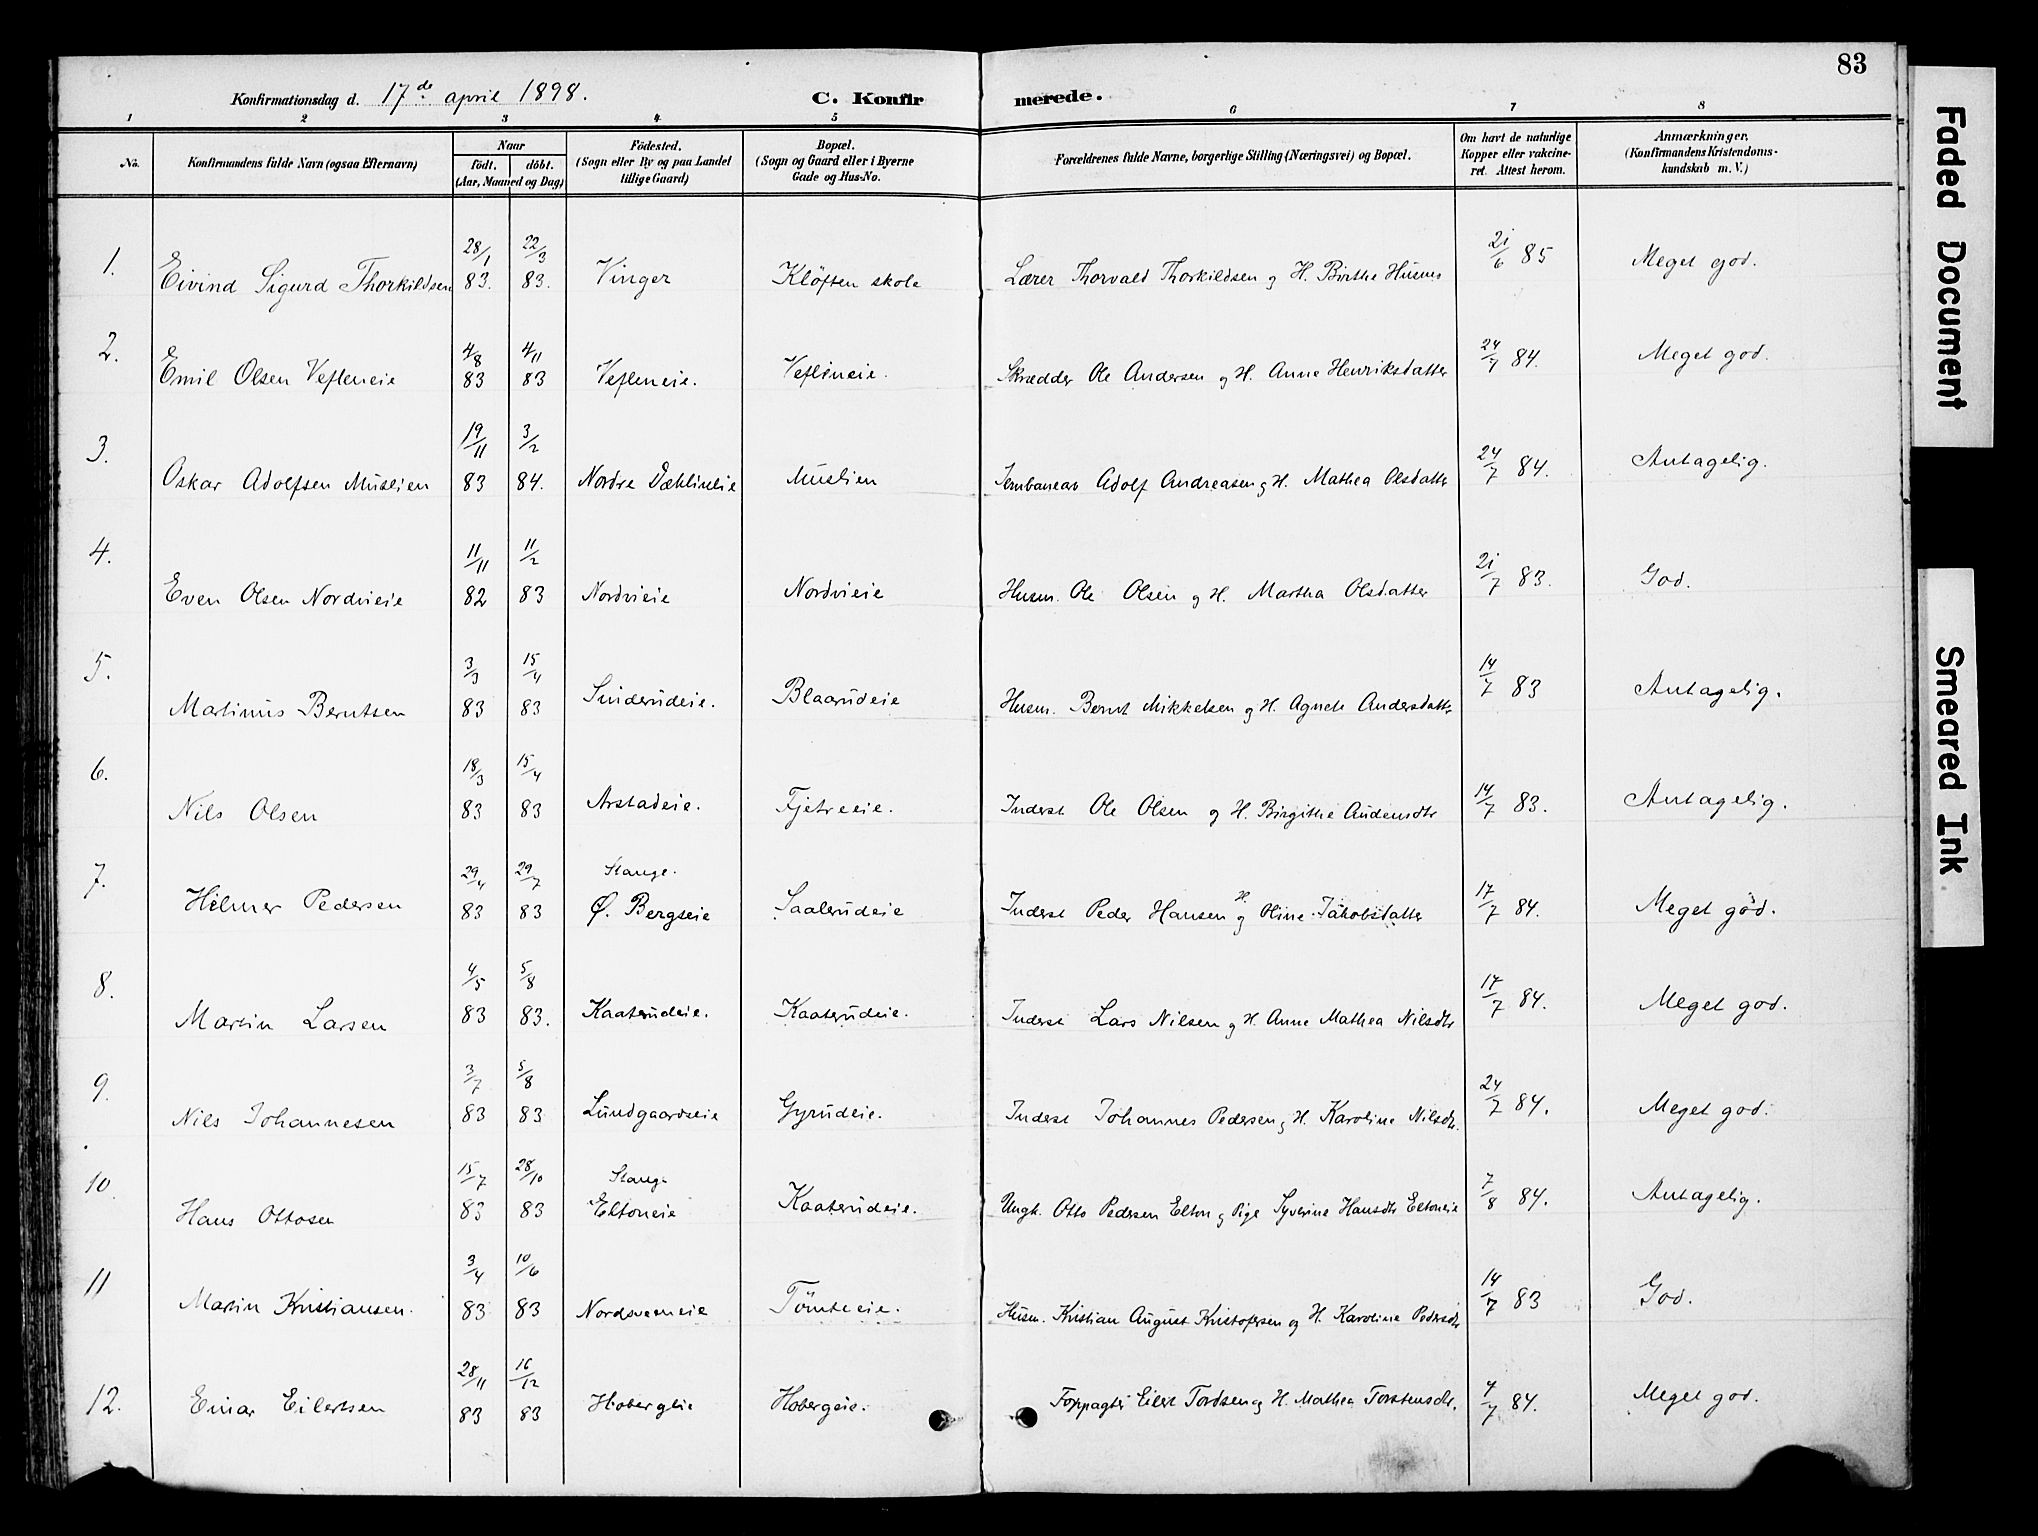 83
Konfirmationsdag d. 17de april 1898. C. Konfirmerede.
1 2 3 4 5 6 7 8
No. Konfirmandens fulde Navn (ogsaa Efternavn) Naar født. døbt. (Aar, Maaned og Dag) Fødested. (Sogn eller By og paa Landet tillige Gaard) Bopæl. (Sogn og Gaard eller i Byerne Gade og Hus-No. Forældrenes fulde Navne, borgerlige Stilling (Næringsvei) og Bopæl. Om havt de naturlige Kopper eller vakcineret. Attest herom. Anmærkninger. (Konfirmandens Kristendomskundskab m. V.)
1. Eivind Sigurd Thorkildsen 28/1 83. 22/3 83. Vinger Kløften skole Lærer Thorvald Thorkildsen og H. Birthe Husmo 21/6 85 Meget god.
2. Emil Olsen Vefleneie 4/8 83 4/11 83 Vefleneie. Vefleneie. Skrædder Ole Andersen og H. Anne Henriksdatter 24/7 84. Meget god.
3. Oskar Adolfsen Muslien 19/11 83 3/2 84. Nordre Dæhlineie Muslien Jernbanearb Adolf Andreasen og H. Mathea Olsdatter 24/7 84. Antagelig.
4. Even Olsen Nordvieie 11/11 82 11/2 83 Nordvieie Nordvieie Husm. Ole Olsen og H. Martha Olsdatter 21/7 83. God.
5. Martinus Berntsen 3/3 83 15/4 83 Sinderudeie. Blaarudeie Husm. Bernt Mikkelsen og H. Agnete Andersdatter 14/7 83 Antagelig.
6. Nils Olsen 18/3 83 15/4 83 Arstadeie. Fjetreeie. Inderst Ole Olsen og H. Birgithe Audensdtr 14/7 83. Antagelig.
7. Hilmer Pedersen 29/4 83 29/7 83 Stange. Ø. Bergseie Saalerudeie Inderst Peder Hansen og H. Oline Jakobsdatter 17/7 84. Meget god.
8. Martin Larsen 4/5 83 5/8 83. Kaaterudeie. Kaaterudeie. Inderst Lars Nilsen og H. Anne Mathea Nilsdtr 17/7 84. Meget god.
9. Nils Johannesen 3/7 83 5/8 83 Lundgaardseie Gyrudeie. Inderst Johannes Pedersen og H. Karoline Nilsdtr. 24/7 84. Meget god.
10. Hans Ottosen 15/7 83 28/10 83 Stange Eltoneie Kaaterudeie. Ungk. Otto Pedersen Elton og Pige Syverine Hansdtr Eltoneie 7/8 84. Antagelig.
11 Martin Kristiansen. 3/4 83 10/6 83 Nordsveeneie Tømteeie. Husm. Kristian August Kristofersen og H. Karoline Pedersdtr 14/7 83 God.
12. Einar Eilertsen 28/11 83 16/12 83 Hobergeie Hobergeie. Forpagter Eilert Tordsen og H. Mathea Torstensdtr. 4/7 84. Meget god.
Faded Document
Smeared Ink